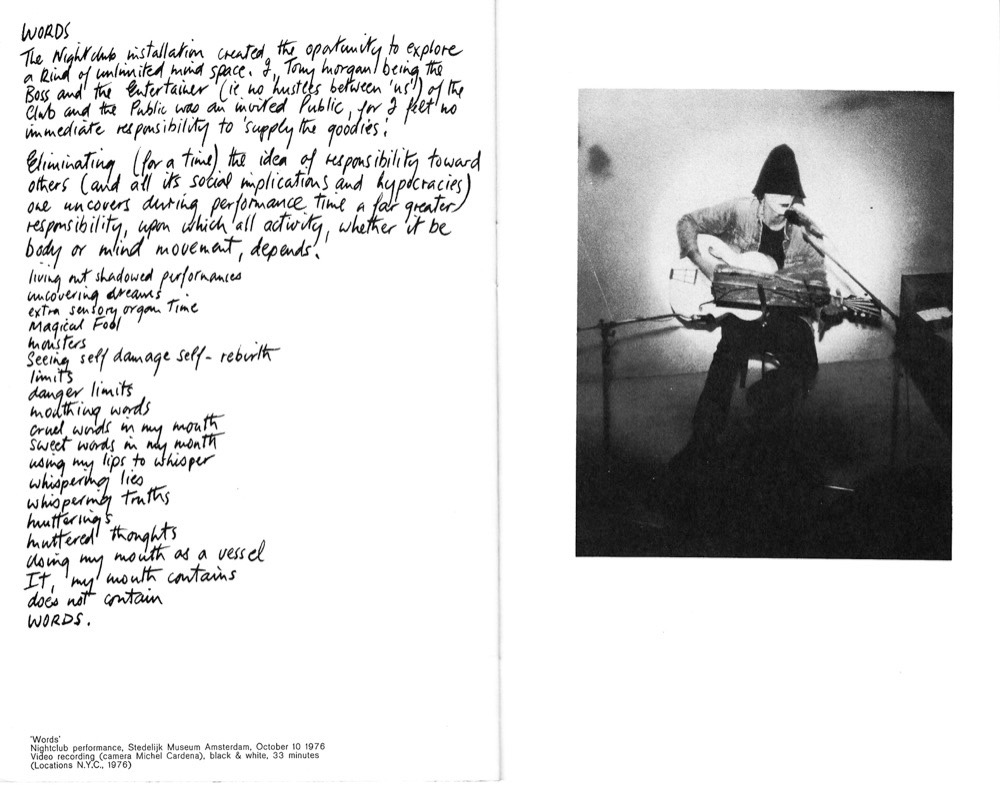 WORDS
The Nightclub installation created, the oportunity to explore
a kind of unlimited mind space. I, Tony Morgan, being the
Boss and the Entertainer (ie no hustles between 'us') of the
Club and the Public was an invited Public, for I felt no
immediate responsibility to 'supply the goodies'.
Eliminating (for a time) the idea of responsibility toward
others (and all its social implications and hypocracies)
one uncovers during performance time a far greater
responsibility, upon which all activity, whether it be
body or mind movement, depends.
living out shadowed performances
uncovering dreams
extra sensory organ Time
Magical Fool
monsters
Seeing self damage self-rebirth
limits
danger limits
mouthing words
cruel words in my mouth
sweet words in my mouth
using my lips to whisper
whispering lies
whispering truths
mutterings
muttered thoughts
using my mouth as a vessel
It, my mouth contains
does not contain
WORDS.
'Words'
Nightclub performance, Stedelijk Museum Amsterdam, October 10 1976
Video recording (camera Michel Cardena), black & white, 33 minutes
(Locations N.Y.C., 1976)